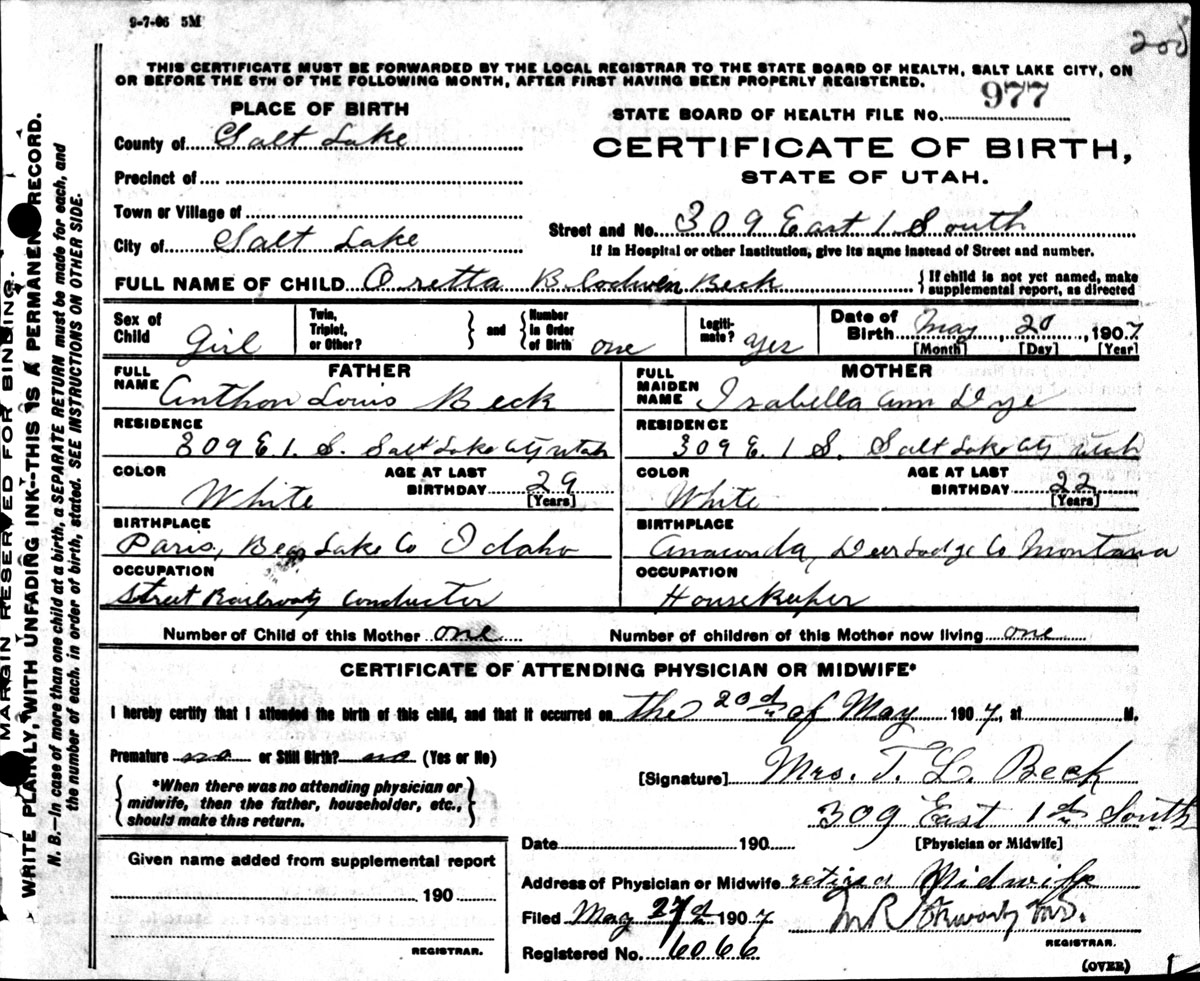 9-7-06 5M
200
THIS CERTIFICATE MUST BE FORWARDED BY THE LOCAL REGISTRAR TO THE STATE BOARD OF HEALTH, SALT LAKE CITY, ON
OR BEFORE THE 5TH OF THE FOLLOWING MONTH, AFTER FIRST HAVING BEEN PROPERLY REGISTERED.
PLACE OF BIRTH
STATE BOARD OF HEALTH FILE NO. 977
County of Salt Lake
CERTIFICATE OF BIRTH,
Precinct of
STATE OF UTAH.
Town or Village of
Street and No. 309 East 1 South
City of Salt Lake
If in Hospital or other Institution, give its name instead of Street and number.
FULL NAME OF CHILD Oretta Blodwin Beck
{If child is not yet named, make supplemental report, as directed
Sex of Child Girl
Twin, Triplet, or Other? } and { Number in Order of Birth one
Legitimate? yes
Date of Birth May 20, 1907
[Month] [Day] [Year]
FATHER
FULL NAME Anthon Louis Beck
RESIDENCE
309 E. 1. S. Salt Lake City Utah
COLOR White
AGE AT LAST BIRTHDAY 29
[Years]
BIRTHPLACE
Paris, Bear Lake Co Idaho
OCCUPATION
Street Railroad Conductor
MOTHER
FULL MAIDEN NAME Izabella Ann Dye
RESIDENCE
309 E. 1 S. Salt Lake City Utah
COLOR White
AGE AT LAST BIRTHDAY 22
[Years]
BIRTHPLACE
Anaconda, Deer Lodge Co Montana
OCCUPATION
Housekeeper
Number of Child of this Mother one Number of children of this Mother now living one
CERTIFICATE OF ATTENDING PHYSICIAN OR MIDWIFE*
I hereby certify that I attended the birth of this child, and that it occurred on the 20th of May 1907, at M.
Premature no or Still Birth? no (Yes or No)
{*When there was no attending physician or
midwife, then the father, householder, etc.,
should make this return.}
[Signature] Mrs. T. L. Beck
309 East 1st South
Date 190
[Physician or Midwife]
Given name added from supplemental report
190
REGISTRAR.
Address of Physician or Midwife retired Midwife
Filed May 27d 1907 M R M.D.
REGISTRAR.
Registered No. 6066
(OVER)
MARGIN RESERVED FOR BINDING.
WRITE PLAINLY, WITH UNFADING INK--THIS IS A PERMANENT RECORD.
N. B.--In case of more than one child at a birth, a SEPARATE RETURN must be made for each, and
the number of each, in order of birth, stated. SEE INSTRUCTIONS ON OTHER SIDE.